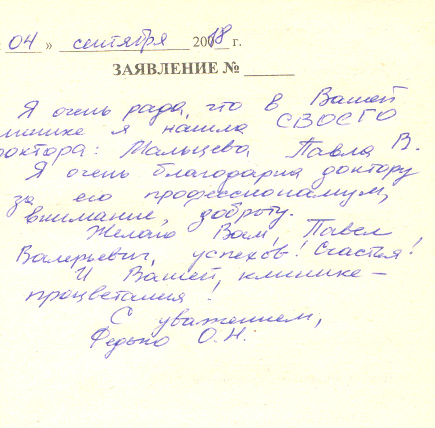 04 » сентября 2018 г.
ЗАЯВЛЕНИЕ № ______
Я очень рада, что в Вашей
линике я нашла СВОЕГО
октора: Мальцева Павла В.
Я очень благодарна доктору
за его профессионализм,
внимание, доброту.
Желаю Вам, Павел
Валерьевич, успехов! Счастья!
И Вашей, клинике –
процветания!
С уважением,
Федько О.Н.